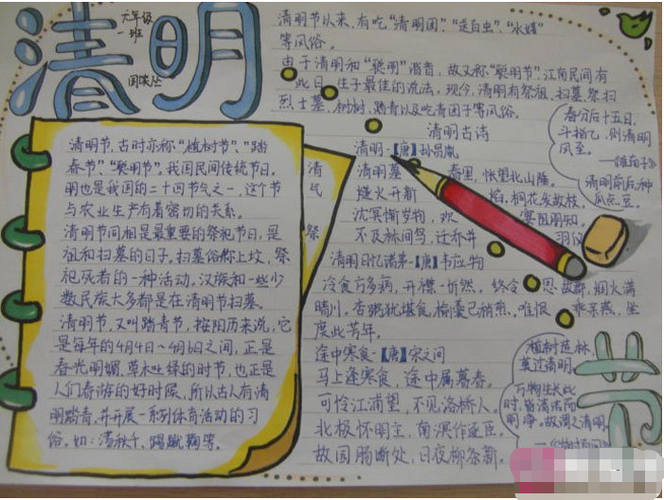 清明
六年级
一班
清明节以来,有吃"清明团"、"送白虫"、
等风俗。
由于清明和"聪明"谐音,故又称"聪明节",江南民间有
此日生子最佳的说法,现今,清明有祭祖、扫墓、祭扫
烈士墓、植树、踏青以及吃青团子等风俗。
清明古诗
清明·【唐】孙昌胤
清明暮春里,怅望北山陲。
燧火开新焰,桐花发故枝。
沈冥惭岁物,欢宴阻朋知。
不及林间鸟,迁乔并羽仪
清明日忆诸弟·【唐】韦应物
冷食方多病,开襟一忻然。终令思故郡,烟火满
晴川。杏粥犹堪食,榆羹已稍煎。唯恨乖亲燕,坐
度此芳年。
途中寒食·【唐】宋之问
马上逢寒食,途中属暮春。
可怜江浦望,不见洛桥人。
北极怀明主,南溟作逐臣。
故园肠断处,日夜柳条新。
清明节,古时亦称"植树节"、"踏
春节"、"聪明节",我国民间传统节日。
明也是我国的二十四节气之一,这个节
与农业生产有着密切的关系。
清明节间相是最重要的祭祀节日,是
祖和扫墓的日子。扫墓俗称上坟,祭
祀死者的一种活动。汉族和一些少
数民族大多都是在清明节扫墓。
清明节,又叫踏青节,按阳历来说,它
是每年的4月4日~4月6日之间,正是
春光明媚,草木吐绿的时节,也正是
人们春游的好时展,所以古人有清
明踏青,并开展一系列体育活动的习
俗。如:荡秋千、蹋蹴鞠等。
清
气
祭
春分后十五日,
斗指乙,则清明
风至。
清明前后,种
瓜点豆。
植树造林,
莫过清明。
万物生长此
时,皆清洁而
明净。故谓之清明。
节